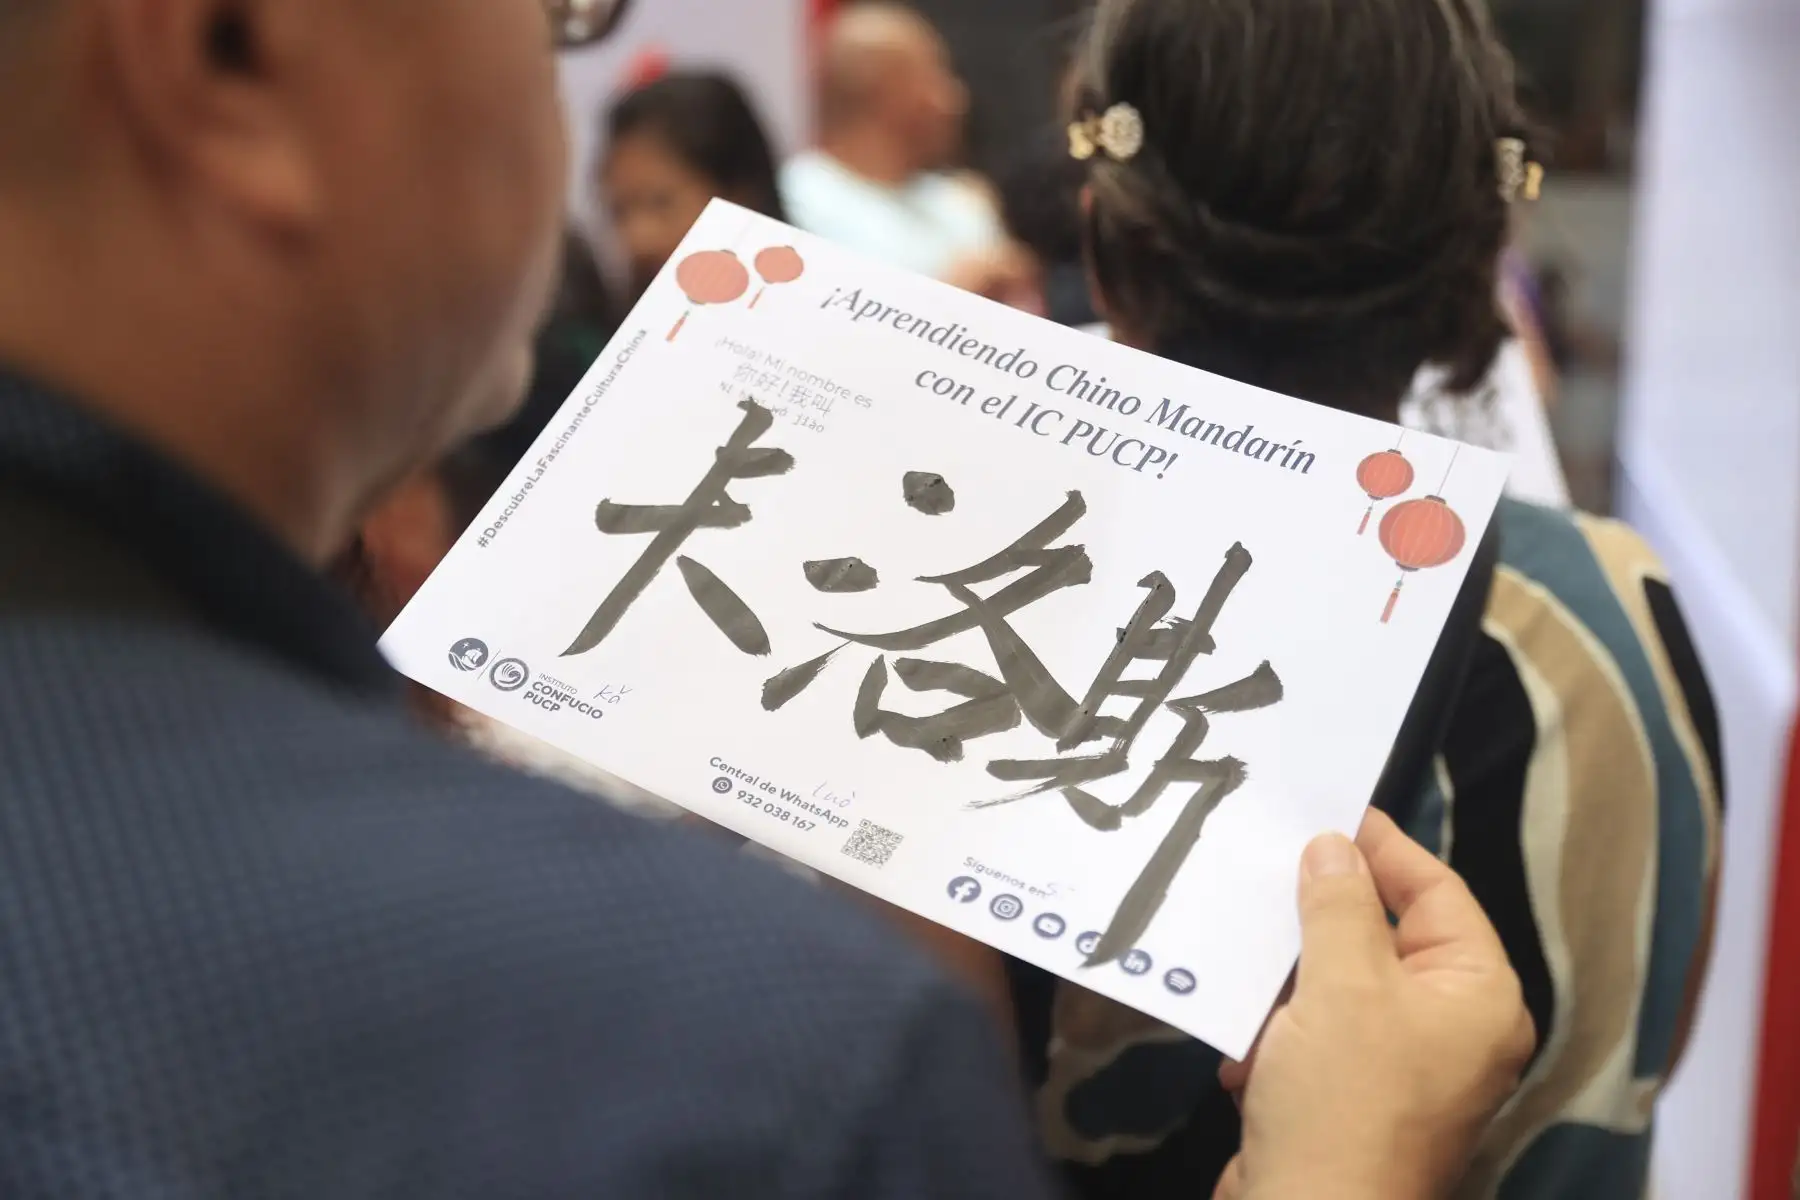 ¡Aprendiendo Chino Mandarín
con el IC PUCP!
#DescubreLaFascinanteCulturaChina
¡Hola! Mi nombre es
你好！我叫
jiào
卡洛斯
INSTITUTO
CONFUCIO
PUCP
kǎ
luò
Central de WhatsApp
932 038 167
Síguenos en
in